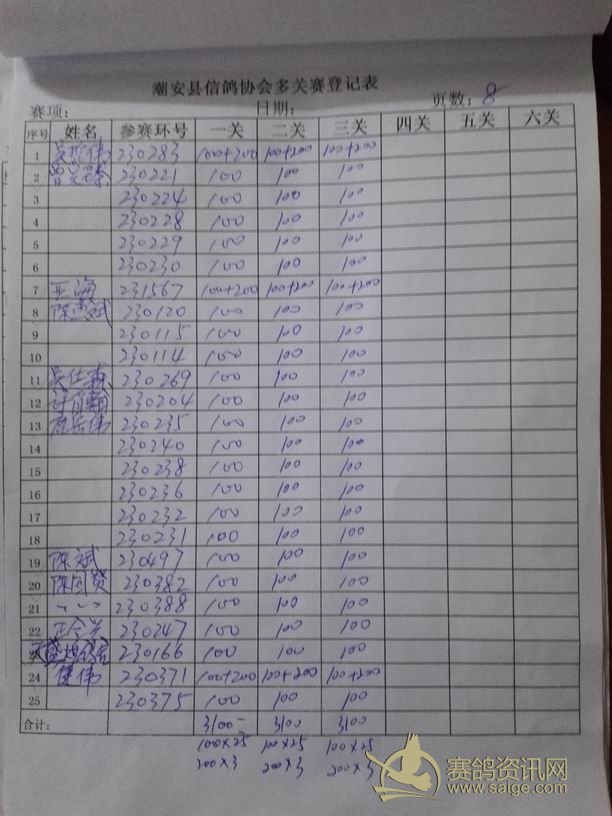 潮安县信鸽协会多关赛登记表
赛项: 日期: 页数: 8
序号 姓名 参赛环号 一关 二关 三关 四关 五关 六关
1 230283 100+200 100+200 100+200
2 230221 100 100 100
3 230224 100 100 100
4 230228 100 100 100
5 230229 100 100 100
6 230230 100 100 100
7 231567 100+200 100+200 100+200
8 230120 100 100 100
9 230115 100 100 100
10 230114 100 100 100
11 230269 100 100 100
12 230204 100 100 100
13 230235 100 100 100
14 230240 100 100 100
15 230238 100 100 100
16 230236 100 100 100
17 230232 100 100 100
18 230231 100 100 100
19 陈斌 230497 100 100 100
20 230382 100 100 100
21 230388 100 100 100
22 230247 100 100 100
23 230166 100 100 100
24 健伟 230371 100+200 100+200 100+200
25 230375 100 100 100
合计: 3100- 3100 3100
100×25 100×25 100×25
200×3 200×3 200×3
赛鸽资讯网
www.saige.com